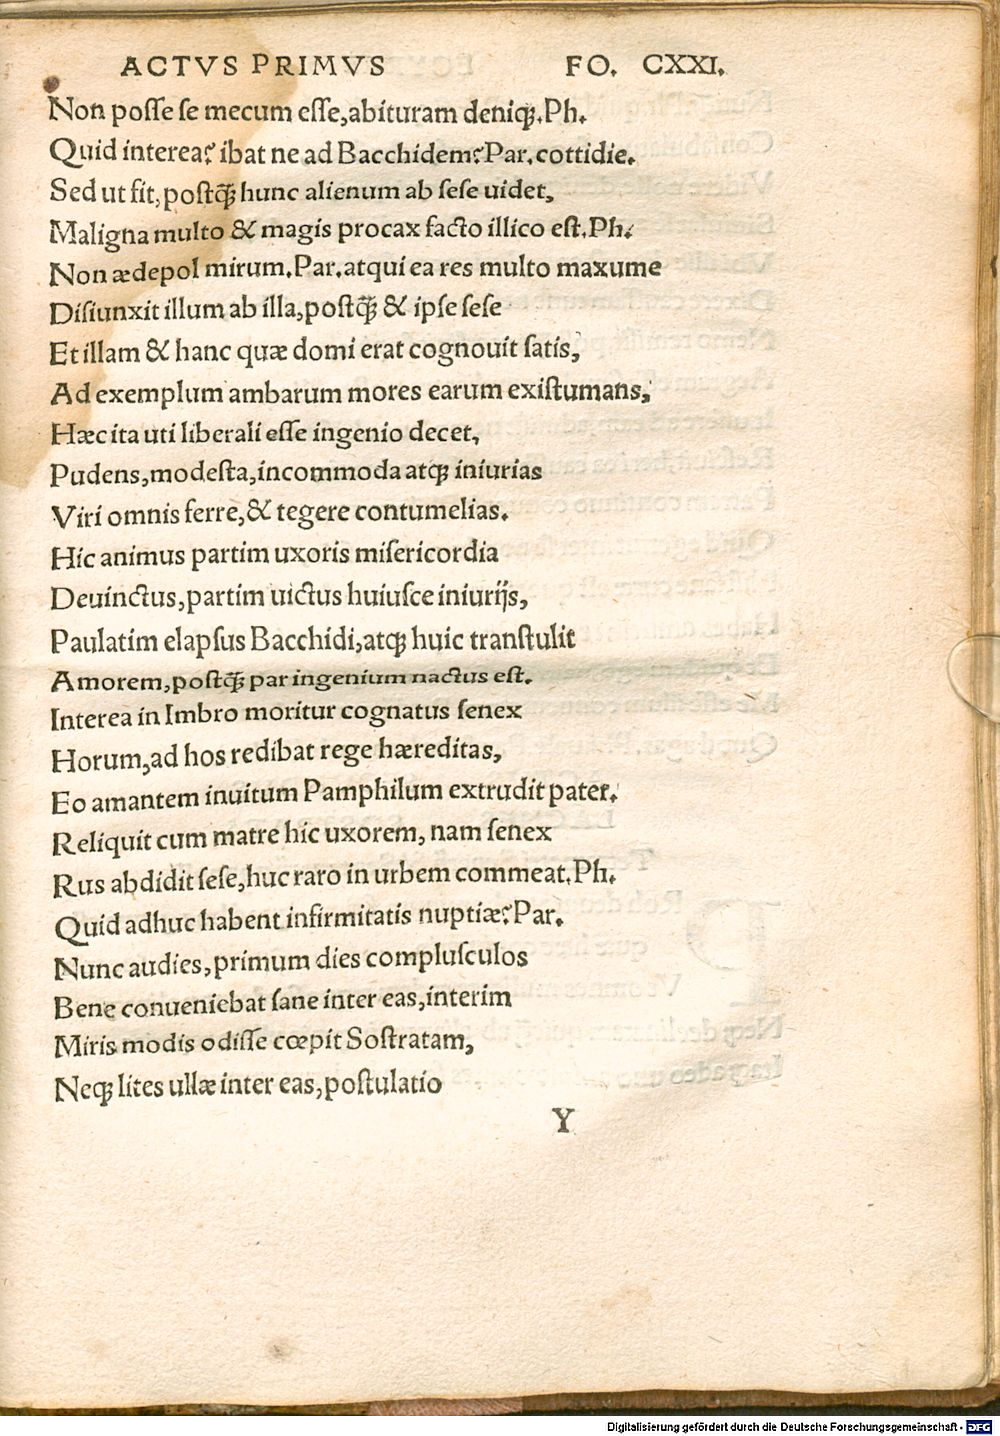 ACTVS PRIMVS FO. CXXI.
Non posse se mecum esse,abituram deniqꝫ.Ph.
Quid interea? ibat ne ad Bacchidem?Par.cottidie.
Sed ut fit,postq̃ꝫ hunc alienum ab sese uidet,
Maligna multo & magis procax facto illico est.Ph.
Non ædepol mirum.Par.atqui ea res multo maxume
Disiunxit illum ab illa,postq̃ꝫ & ipse sese
Et illam & hanc quæ domi erat cognouit satis,
Ad exemplum ambarum mores earum existumans,
Hæc ita uti liberali esse ingenio decet,
Pudens,modesta,incommoda atqꝫ iniurias
Viri omnis ferre,& tegere contumelias.
Hic animus partim uxoris misericordia
Deuinctus,partim uictus huiusce iniurijs,
Paulatim elapsus Bacchidi,atqꝫ huic transtulit
Amorem,postq̃ꝫ par ingenium nactus est.
Interea in Imbro moritur cognatus senex
Horum,ad hos redibat rege hæreditas,
Eo amantem inuitum Pamphilum extrudit pater.
Reliquit cum matre hic uxorem, nam senex
Rus abdidit sese,huc raro in urbem commeat.Ph.
Quid adhuc habent infirmitatis nuptiæ?Par.
Nunc audies,primum dies complusculos
Bene conueniebat sane inter eas,interim
Miris modis odisse cœpit Sostratam,
Neqꝫ lites ullæ inter eas,postulatio
Y
Digitalisierung gefördert durch die Deutsche Forschungsgemeinschaft - DFG